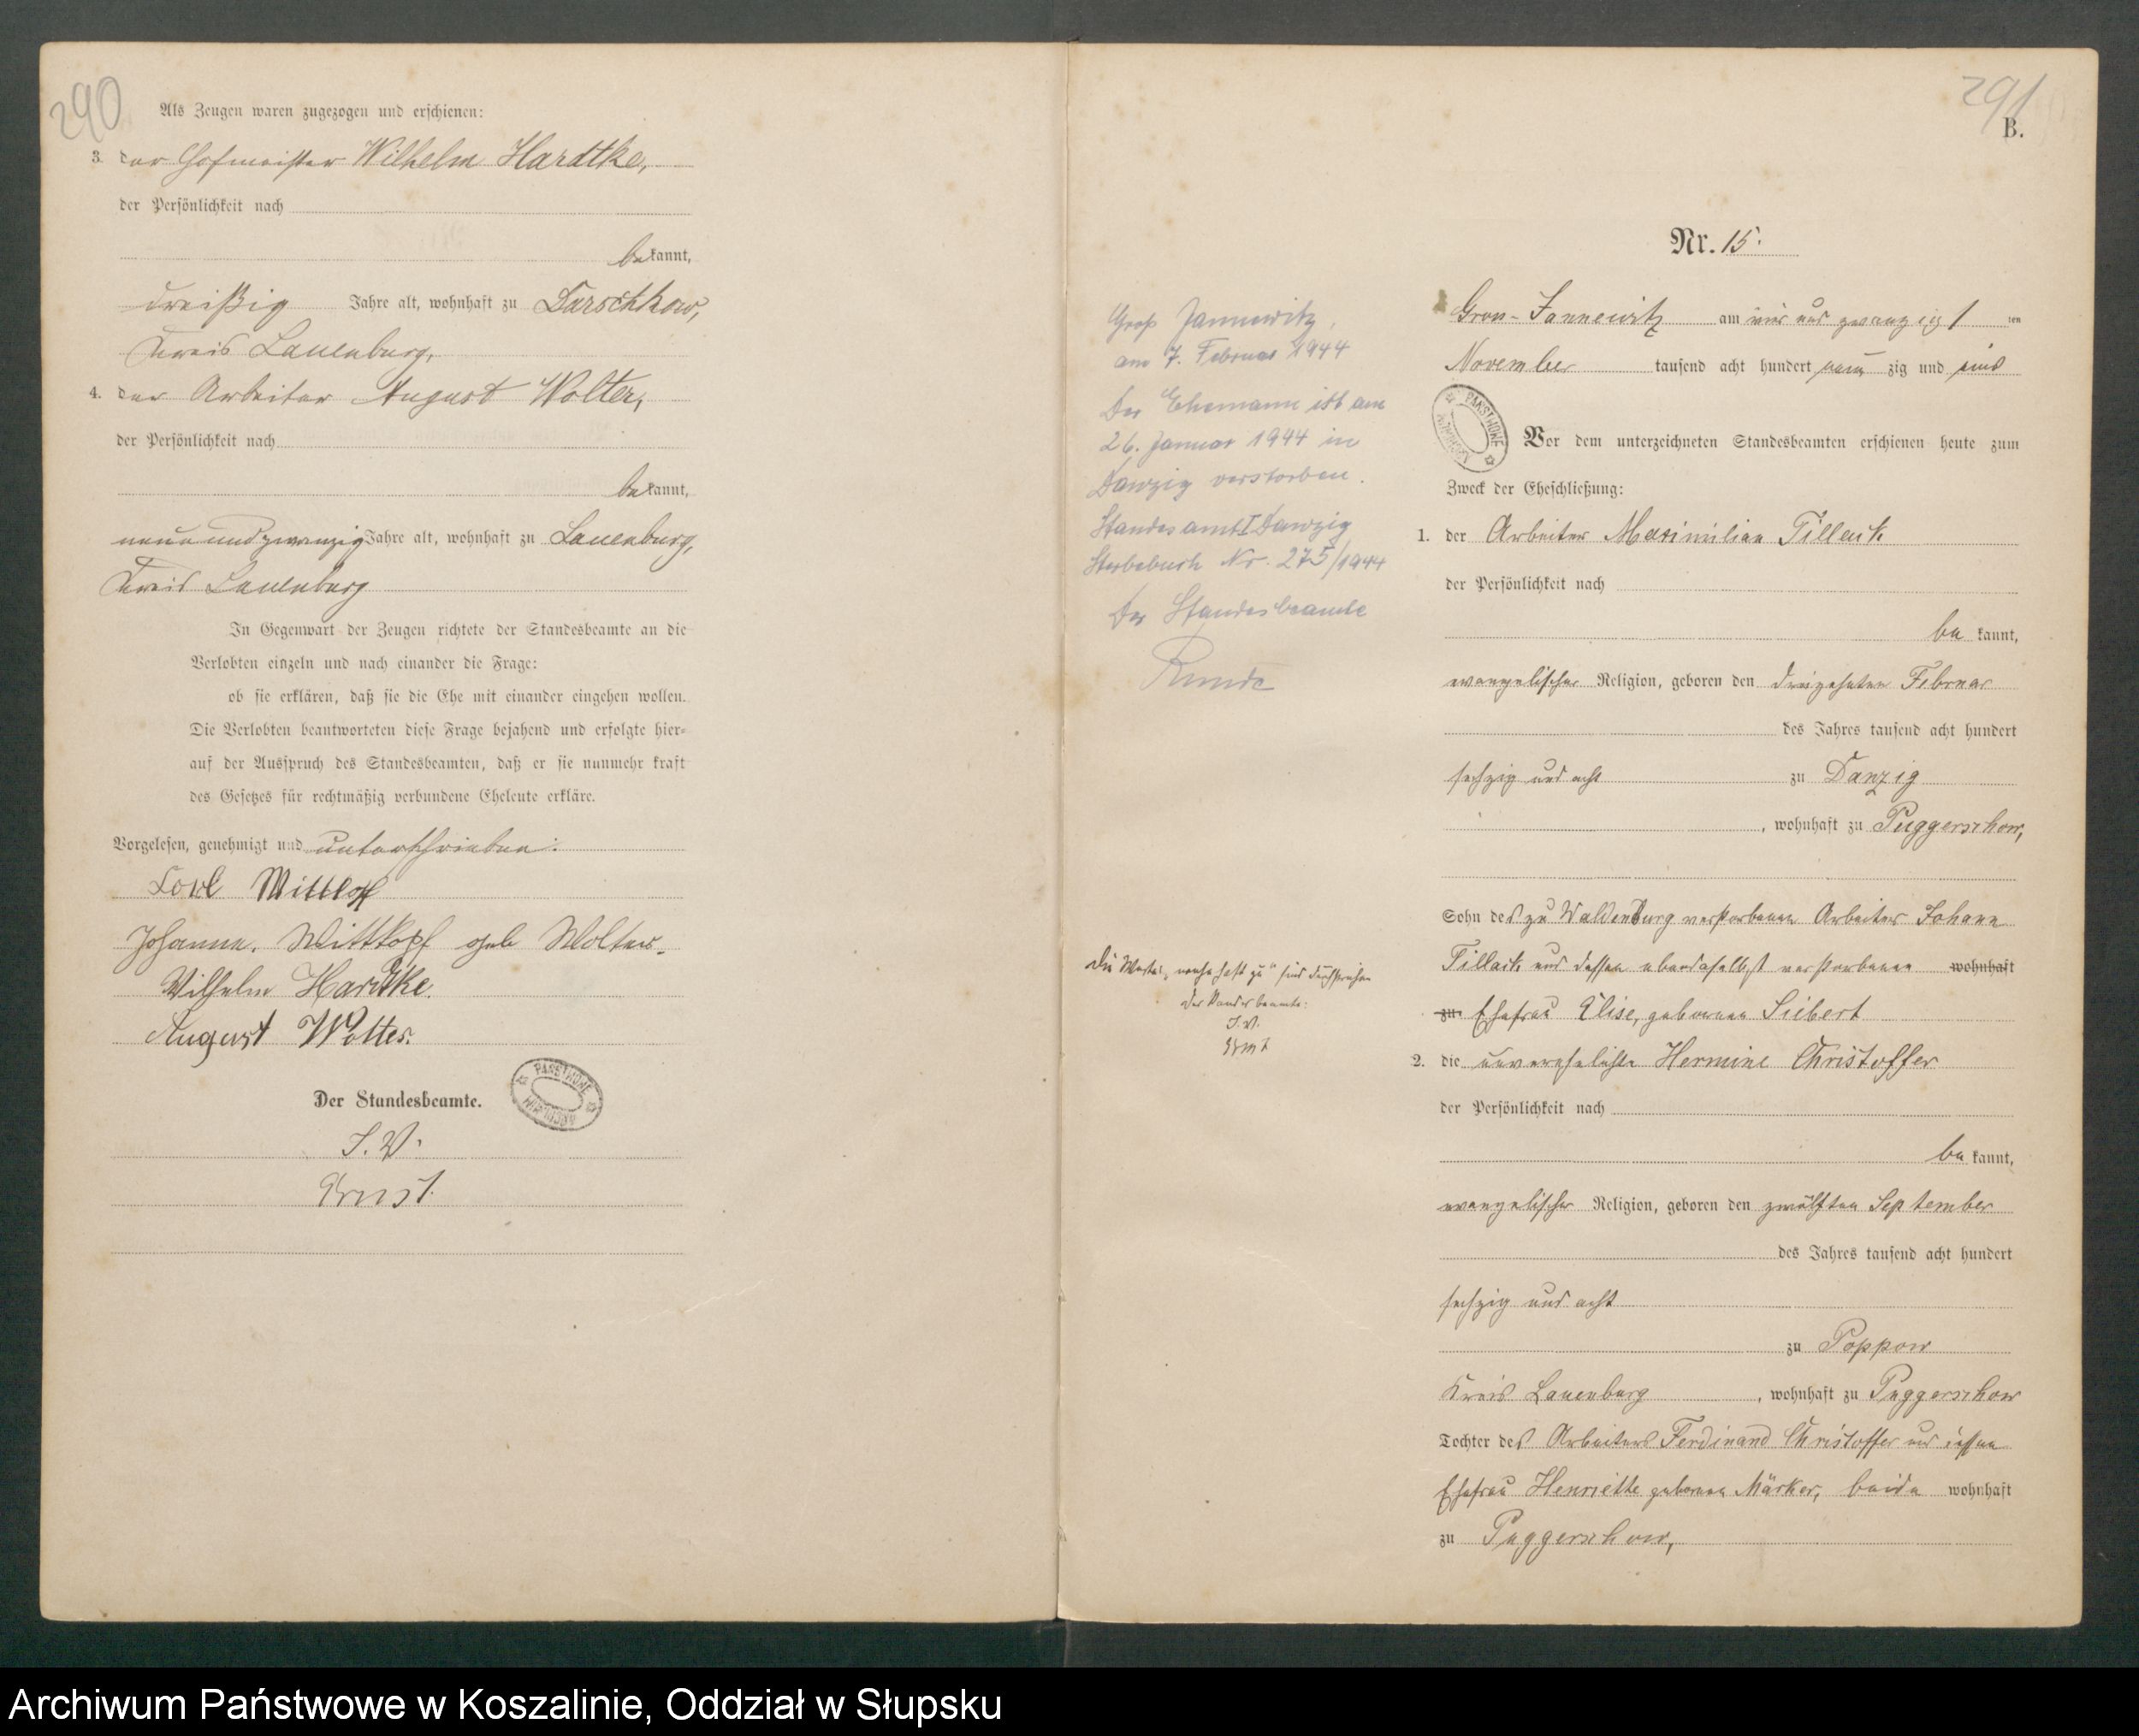 290
Als Zeugen waren zugezogen und erschienen:
3. der Hofmeister Wilhelm Hardtke,
der Persönlichkeit nach
bekannt,
dreißig Jahre alt, wohnhaft zu Darschkow,
Kreis Lauenburg,
4. der Arbeiter August Wolter,
der Persönlichkeit nach
bekannt,
neunundzwanzig Jahre alt, wohnhaft zu Lauenburg,
Kreis Lauenburg
In Gegenwart der Zeugen richtete der Standesbeamte an die
Verlobten einzeln und nach einander die Frage:
ob sie erklären, daß sie die Ehe mit einander eingehen wollen.
Die Verlobten beantworteten diese Frage bejahend und erfolgte hier-
auf der Ausspruch des Standesbeamten, daß er sie nunmehr kraft
des Gesetzes für rechtmäßig verbundene Eheleute erkläre.
Vorgelesen, genehmigt und unterschrieben:
Carl
Johanna Wittkopf geb Wolter
Wilhelm Hardtke.
August Wolter.
Der Standesbeamte.
J. V.
Ernst.
PAŃSTWOWE ARCHIWUM
291
B.
Nr. 15.
Gross-Jannewitz am vier und zwanzigsten
November tausend acht hundert neunzig und eins
PAŃSTWOWE ARCHIWUM
Vor dem unterzeichneten Standesbeamten erschienen heute zum
Zweck der Eheschließung:
1. der Arbeiter Maximilian Tillack
der Persönlichkeit nach
bekannt,
evangelischer Religion, geboren den dreizehnten Februar
des Jahres tausend acht hundert
sechzig und acht zu Danzig
, wohnhaft zu Puggerschow,
Sohn des zu Waldenburg verstorbenen Arbeiter Johann
Tillack und dessen ebendaselbst verstorbenen wohnhaft
zu Ehefrau Elise, geborenen Siebert
2. die unverehelichte Hermine Christoffer
der Persönlichkeit nach
bekannt,
evangelischer Religion, geboren den zwölften September
des Jahres tausend acht hundert
sechzig und acht
zu Poppow
Kreis Lauenburg, wohnhaft zu Puggerschow
Tochter des Arbeiters Ferdinand Christoffer und dessen
Ehefrau Henriette geborenen Märker, beide wohnhaft
zu Puggerschow,
Groß Jannewitz,
am 7. Februar 1944
Der Ehemann ist am
26. Januar 1944 in
Danzig verstorben.
Standesamt I Danzig
Sterbebuch Nr. 275/1944
Der Standesbeamte
Die Worte: „wohnhaft zu" sind durchstrichen
Der Standesbeamte:
J. V.
Ernst
Archiwum Państwowe w Koszalinie, Oddział w Słupsku